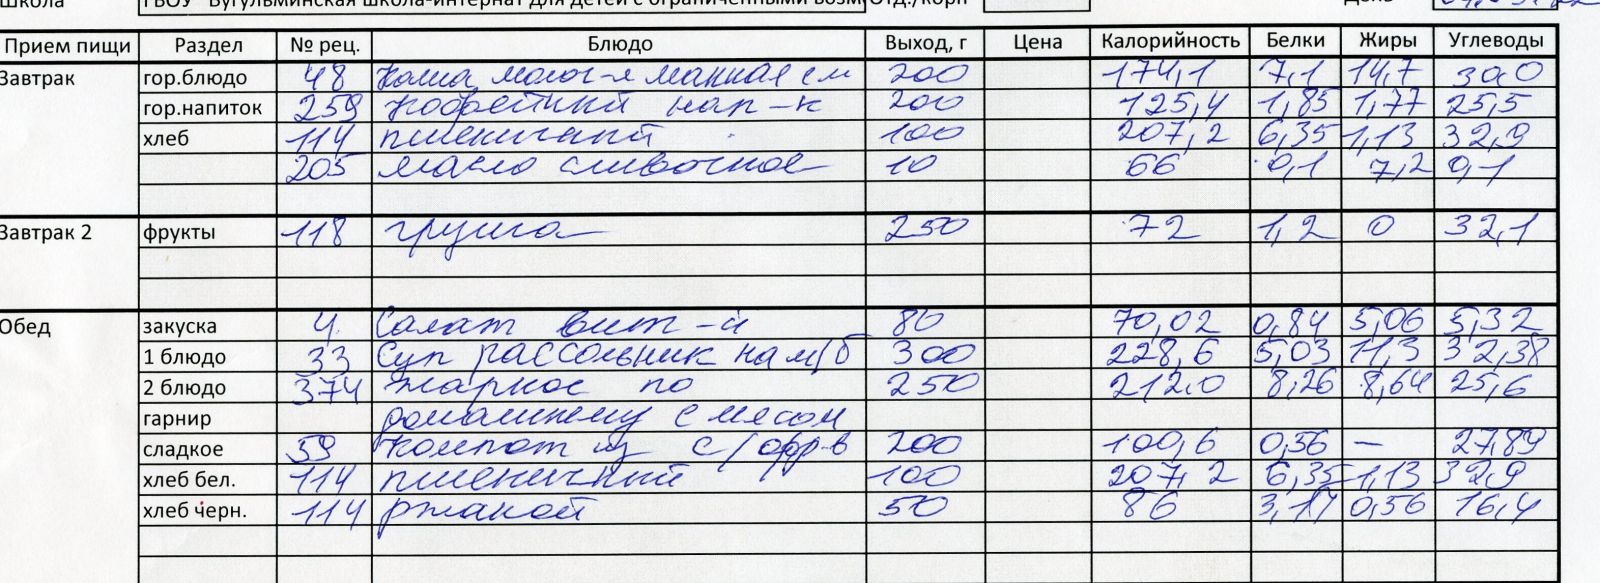 Школа ГБОУ "Бугульминская школа-интернат для детей с ограниченными возм Отд./корп День
Прием пищи Раздел № рец. Блюдо Выход, г Цена Калорийность Белки Жиры Углеводы
Завтрак гор.блюдо 48 Каша молоч-я манная с м 200 174,1 7,1 14,7 30,0
гор.напиток 259 Кофейный нап-к 200 125,4 1,85 1,77 25,5
хлеб 114 пшеничный 100 207,2 6,35 1,13 32,9
205 масло сливочное 10 66 0,1 7,2 0,1
Завтрак 2 фрукты 118 груша 250 72 1,2 0 32,1
Обед закуска 4 Салат вит-й 80 70,02 0,84 5,06 5,32
1 блюдо 33 Суп рассольник на м/б 300 228,6 5,03 11,3 32,38
2 блюдо 374 жаркое по 250 212.0 8,26 8,64 25,6
гарнир домашнему с мясом
сладкое 59 Компот из с/офр-в 200 100,6 0,56 — 27,89
хлеб бел. 114 пшеничный 100 207,2 6,35 1,13 32,9
хлеб черн. 114 ржаной 50 86 0,56 16,4